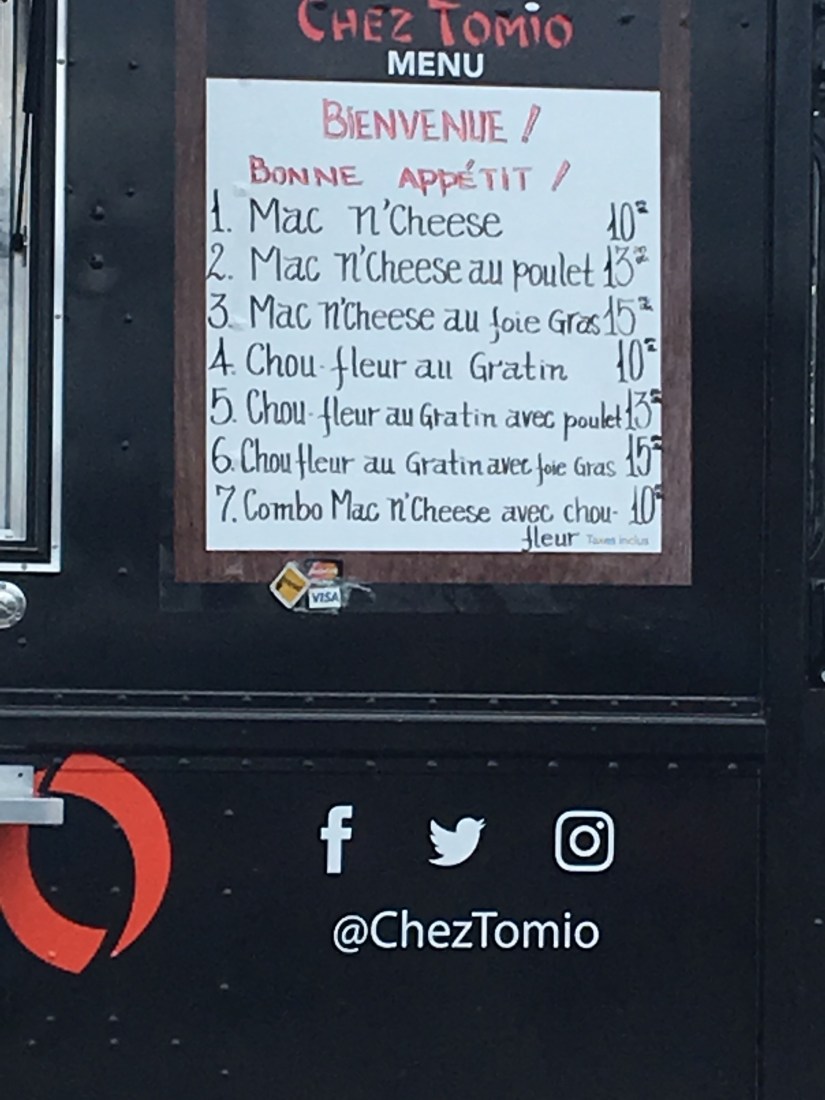 CHEZ TOMIO
MENU
BIENVENUE !
BONNE APPÉTIT !
1. Mac n'Cheese 10
2. Mac n'Cheese au poulet 13
3. Mac n'Cheese au foie Gras 15
4. Chou-fleur au Gratin 10
5. Chou-fleur au Gratin avec poulet 13
6. Chou fleur au Gratin avec foie Gras 15
7. Combo Mac n'Cheese avec chou- 10
fleur Taxes inclus
VISA
@ChezTomio